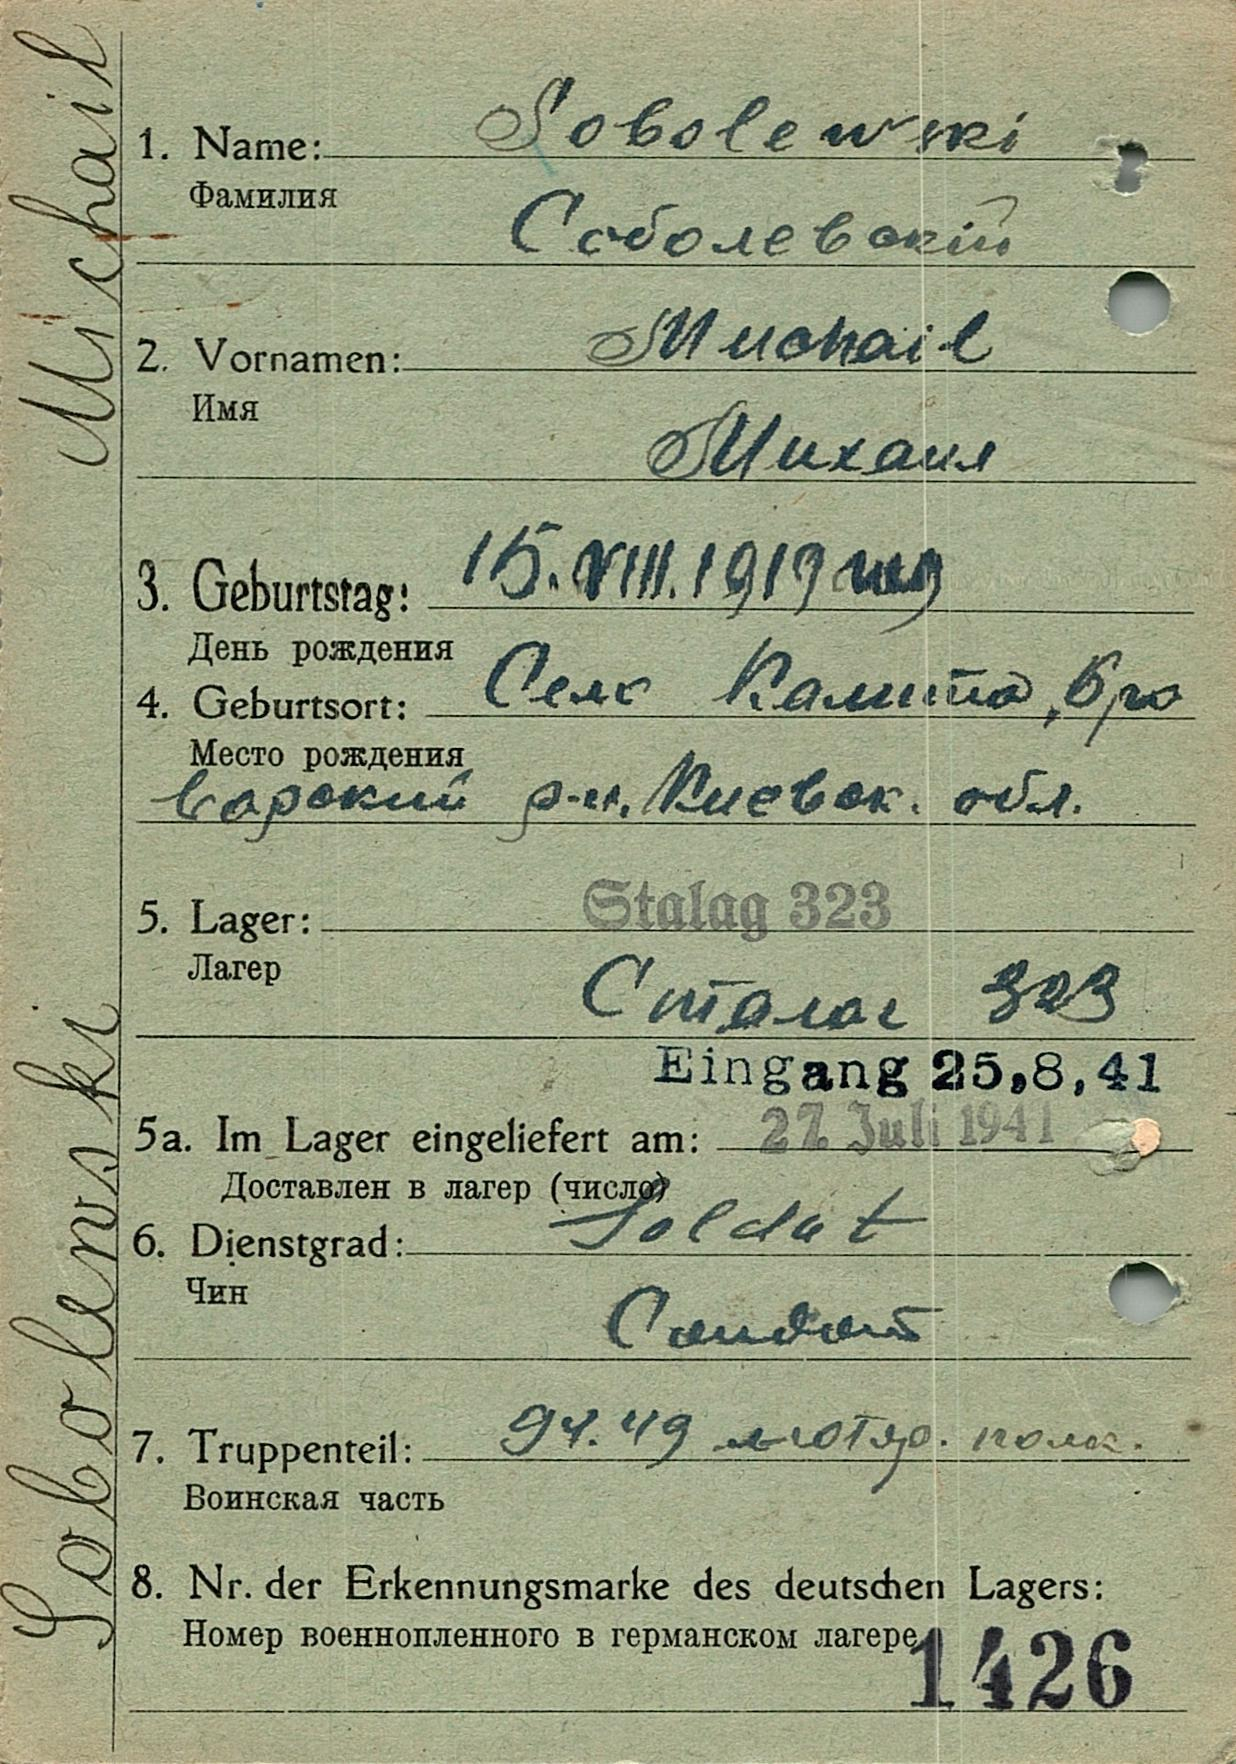 Sobolewski Michail
1. Name: Sobolewski
Фамилия
Соболевский
2. Vornamen: Muchail
Имя
Михаил
3. Geburtstag: 15.VIII.1919
День рождения
4. Geburtsort: Село Калита, Бро
Место рождения
варский р-н, Киевск. обл.
5. Lager: Stalag 323
Лагер
Сталаг 323
Eingang 25,8,41
5a. Im Lager eingeliefert am: 27. Juli 1941
Доставлен в лагер (число)
6. Dienstgrad: Soldat
Чин
Солдат
7. Truppenteil: полк.
Воинская часть
8. Nr. der Erkennungsmarke des deutschen Lagers:
Номер военнопленного в германском лагере
1426